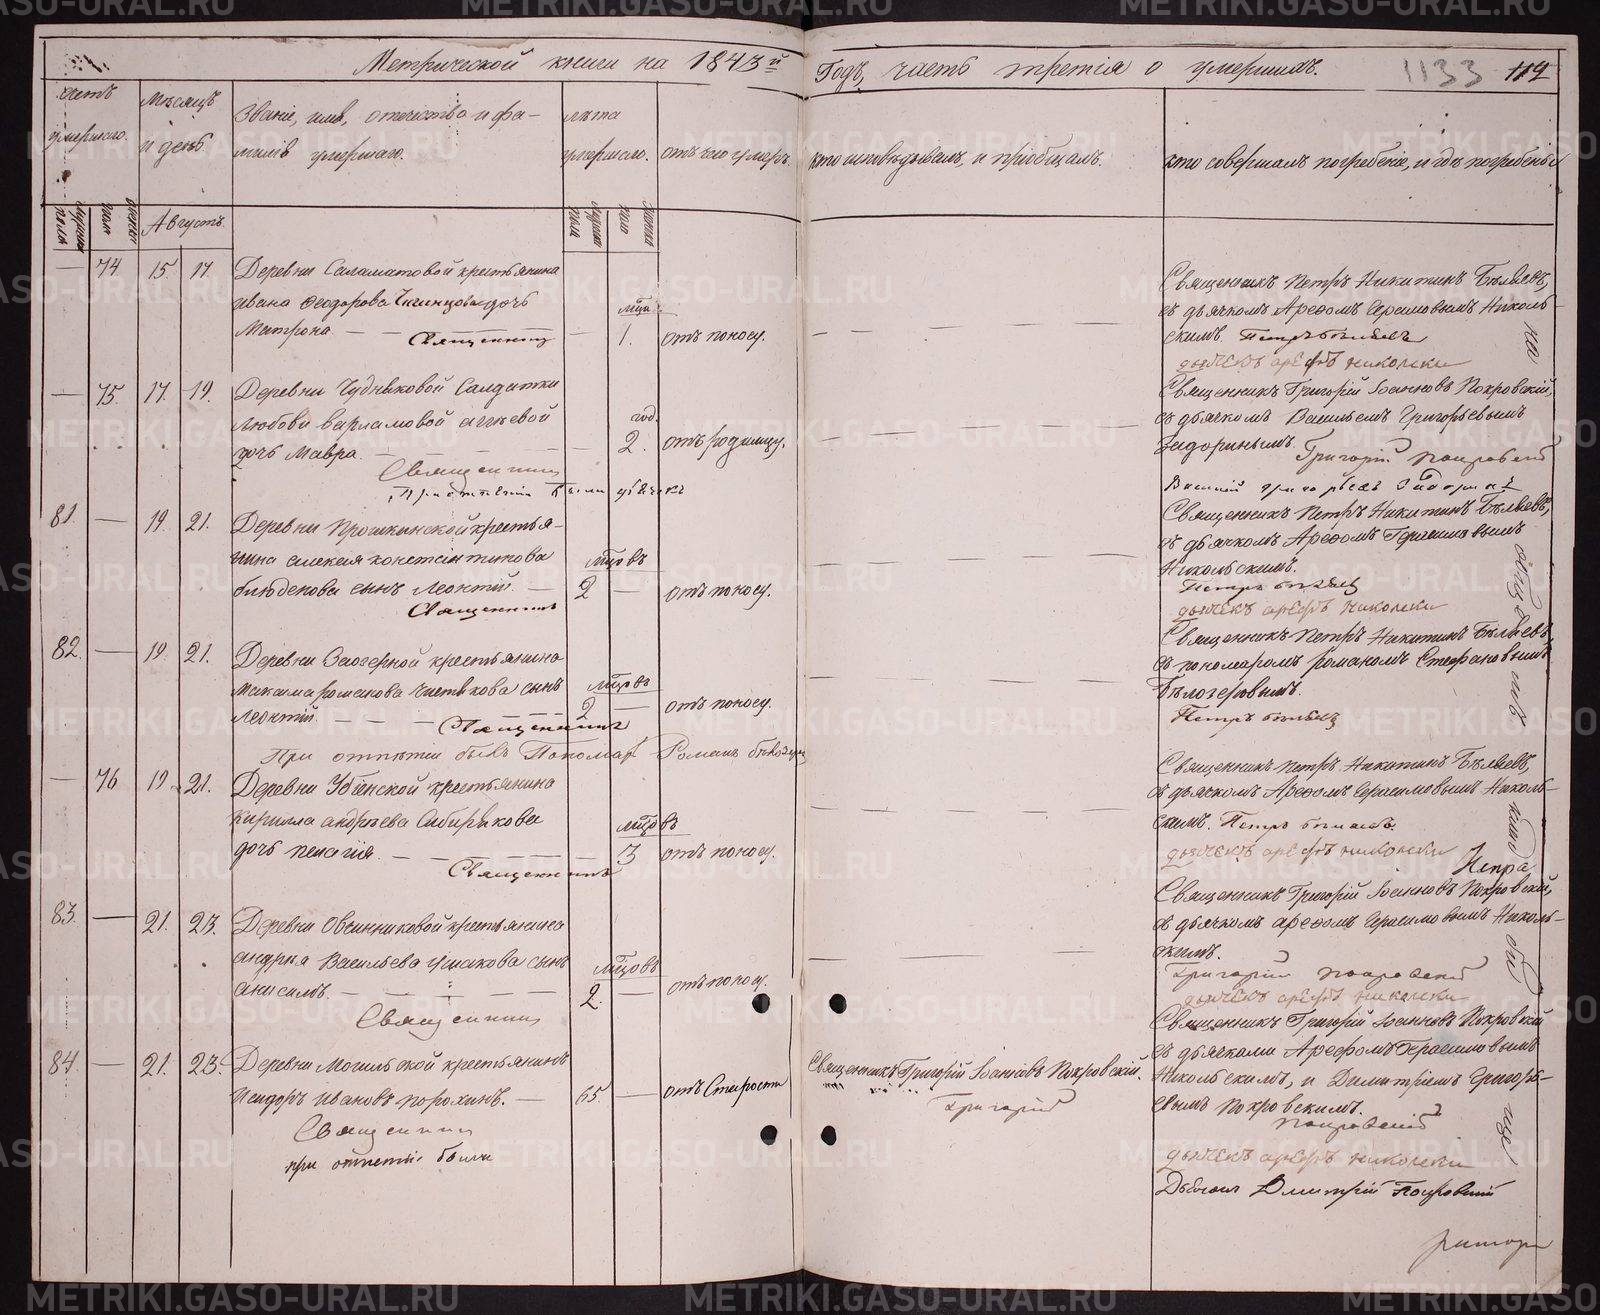 Метрической книги на 1843й Годъ, часть третія о умершихъ. 1133 114
счетъ умершаго.
Мѣсяцъ и день
Званіе, имя, отечество и фамилія умершаго.
лѣта умершаго.
отъ чего умеръ.
кто исповѣдывалъ, и пріобщалъ.
кто совершалъ погребеніе, и гдѣ погребены
мужска пола
женска пола
Августъ.
мужска пола
женска пола
— 74 15. 17.
Деревни Саламатовой крестьянина
Ивана Ѳеодорова дочь
Матрона. — — Священникъ
мца
— 1. отъ поносу.
Священникъ Петръ Никитинъ Бѣляевъ,
съ дьячкомъ Ареѳомъ Герасимовымъ Николь-
скимъ. Петръ Бѣляевъ
дьячекъ Арефъ Николски
— 75. 17. 19.
Деревни Чудняковой Салдатки
Любови Варламовой
дочь Мавра. — Священникъ
год.
2. отъ родимцу.
Священникъ Григорій Іоанновъ Покровскій,
съ дьячкомъ Васильемъ Григорьевымъ
Задоринымъ. Григорій Покровскій
При отпетіи были дьячекъ Василій Григорьевъ Задоринъ
81. — 19. 21.
Деревни Прошкинской крестья-
нина Алексея Константинова
сынъ Леонтій. — Священникъ
мцовъ
2 — отъ поносу.
Священникъ Петръ Никитинъ Бѣляевъ,
съ дьячкомъ Ареѳомъ Герасимовымъ
Никольскимъ.
Петръ Бѣляевъ
дьячекъ Арефъ Николски
82. — 19. 21.
Деревни Заозерной крестьянина
Максима Романова Чистякова сынъ
Леонтій — — — Священникъ
мцовъ
2 — отъ поносу.
Священникъ Петръ Никитинъ Бѣляевъ,
съ пономаромъ Романомъ Стефановымъ
Бѣлозеровымъ.
Петръ Бѣляевъ
При отпѣтіи былъ Пономарь Романъ Бѣлозеровъ
— 76 19 21.
Деревни Убіенской крестьянина
Кирилла Андрѣева Сибирякова
дочь Пелагія. — — — Священникъ
мцовъ
3 отъ поносу.
Священникъ Петръ Никитинъ Бѣляевъ,
съ дьячкомъ Ареѳомъ Герасимовымъ Николь-
скимъ. Петръ Бѣляевъ.
дьячекъ Арефъ Николски
83. — 21. 23.
Деревни Овчинниковой крестьянина
Андрея Васильева Ушакова сынъ
Анисимъ. — — — Священникъ
мцовъ
2. — отъ поносу.
Священникъ Григорій Іоанновъ Покровскій,
съ дьячкомъ Ареѳомъ Герасимовымъ Николь-
скимъ.
Григорій Покровскій
дьячекъ Арефъ Николски
84. — 21. 23.
Деревни Могильской крестьянинъ
Исидоръ Ивановъ Порохинъ. —
Священникъ
65. — отъ Старости
Священникъ Григорій Іоанновъ Покровскій.
Григорій
Священникъ Григорій Іоанновъ Покровскій
съ дьячками Ареѳомъ Герасимовымъ
Никольскимъ, и Димитріемъ Григорь-
евымъ Покровскимъ.
Покровскій
при отпетіи были
дьячекъ Арефъ Николски
Дьячекъ Дмитрій Покровскій
на
общемъ
METRIKI.GASO-URAL.RU